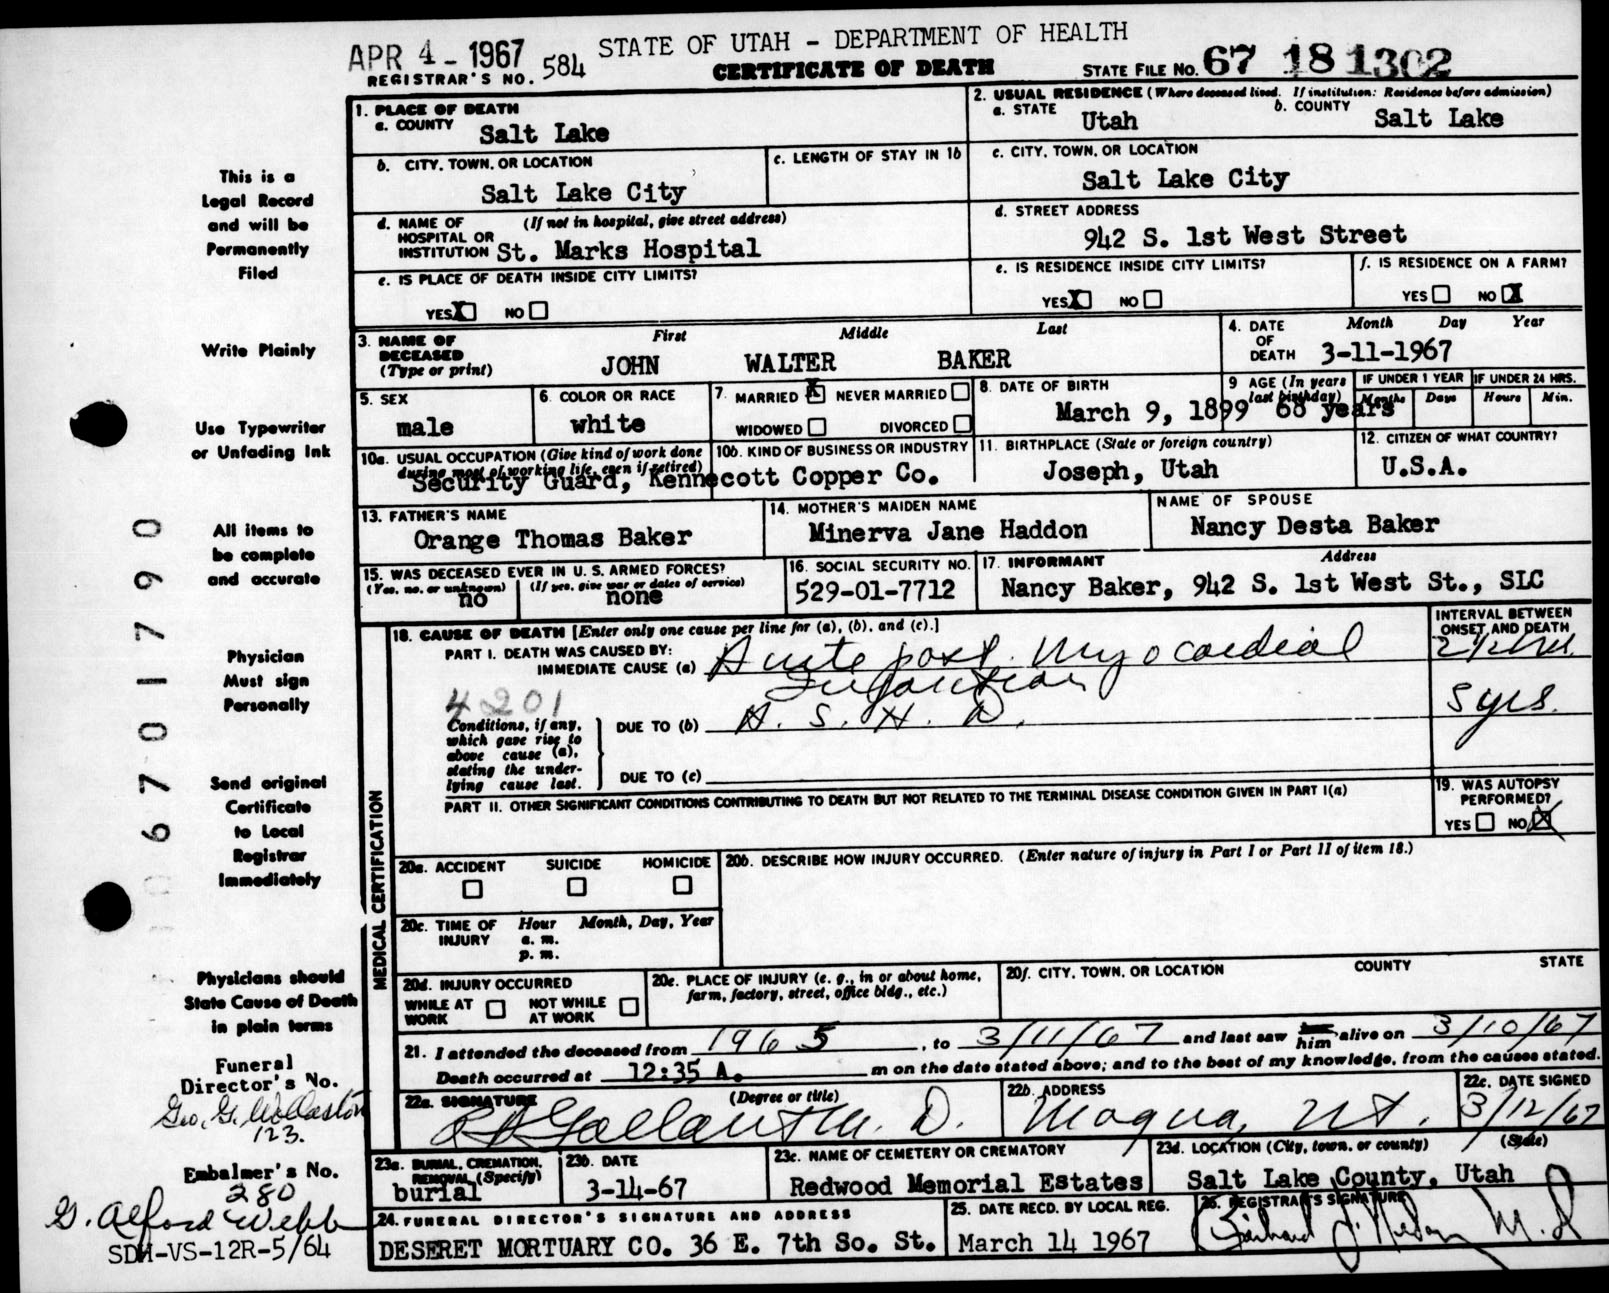 APR 4 - 1967
STATE OF UTAH - DEPARTMENT OF HEALTH
REGISTRAR'S NO. 584
CERTIFICATE OF DEATH
STATE FILE NO. 67 18 1302
This is a
Legal Record
and will be
Permanently
Filed
Write Plainly
Use Typewriter
or Unfading Ink
All items to
be complete
and accurate
Physician
Must sign
Personally
Send original
Certificate
to Local
Registrar
Immediately
Physicians should
State Cause of Death
in plain terms
Funeral
Director's No.
Geo. G. Wollaston
123.
Embalmer's No.
280
G. Alford Webb
SDH-VS-12R-5/64
0 6 7 0 1 7 9 0
1. PLACE OF DEATH
a. COUNTY Salt Lake
2. USUAL RESIDENCE (Where deceased lived. If institution: Residence before admission)
a. STATE Utah b. COUNTY Salt Lake
b. CITY, TOWN, OR LOCATION
Salt Lake City
c. LENGTH OF STAY IN 1b
c. CITY, TOWN, OR LOCATION
Salt Lake City
d. NAME OF HOSPITAL OR INSTITUTION (If not in hospital, give street address)
St. Marks Hospital
d. STREET ADDRESS
942 S. 1st West Street
e. IS PLACE OF DEATH INSIDE CITY LIMITS?
YES X NO
e. IS RESIDENCE INSIDE CITY LIMITS?
YES X NO
f. IS RESIDENCE ON A FARM?
YES NO X
3. NAME OF DECEASED (Type or print)
First Middle Last
JOHN WALTER BAKER
4. DATE OF DEATH Month Day Year
3-11-1967
5. SEX
male
6. COLOR OR RACE
white
7. MARRIED X NEVER MARRIED
WIDOWED DIVORCED
8. DATE OF BIRTH
March 9, 1899
9 AGE (In years last birthday)
68 years
IF UNDER 1 YEAR
Months Days
IF UNDER 24 HRS.
Hours Min.
10a. USUAL OCCUPATION (Give kind of work done during most of working life, even if retired)
10b. KIND OF BUSINESS OR INDUSTRY
Security Guard, Kennecott Copper Co.
11. BIRTHPLACE (State or foreign country)
Joseph, Utah
12. CITIZEN OF WHAT COUNTRY?
U.S.A.
13. FATHER'S NAME
Orange Thomas Baker
14. MOTHER'S MAIDEN NAME
Minerva Jane Haddon
NAME OF SPOUSE
Nancy Desta Baker
15. WAS DECEASED EVER IN U. S. ARMED FORCES?
(Yes, no, or unknown) (If yes, give war or dates of service)
no none
16. SOCIAL SECURITY NO.
529-01-7712
17. INFORMANT Address
Nancy Baker, 942 S. 1st West St., SLC
MEDICAL CERTIFICATION
18. CAUSE OF DEATH [Enter only one cause per line for (a), (b), and (c).]
INTERVAL BETWEEN ONSET AND DEATH
PART I. DEATH WAS CAUSED BY:
IMMEDIATE CAUSE (a) Acute post. Myocardial
Infarction
4201
Conditions, if any, which gave rise to above cause (a), stating the underlying cause last.
DUE TO (b) A. S. H. D. 5 yrs.
DUE TO (c)
PART II. OTHER SIGNIFICANT CONDITIONS CONTRIBUTING TO DEATH BUT NOT RELATED TO THE TERMINAL DISEASE CONDITION GIVEN IN PART I(a)
19. WAS AUTOPSY PERFORMED?
YES NO X
20a. ACCIDENT SUICIDE HOMICIDE
20b. DESCRIBE HOW INJURY OCCURRED. (Enter nature of injury in Part I or Part II of item 18.)
20c. TIME OF INJURY Hour Month, Day, Year
a. m.
p. m.
20d. INJURY OCCURRED
WHILE AT WORK NOT WHILE AT WORK
20e. PLACE OF INJURY (e. g., in or about home, farm, factory, street, office bldg., etc.)
20f. CITY, TOWN, OR LOCATION COUNTY STATE
21. I attended the deceased from 1965, to 3/11/67 and last saw him alive on 3/10/67
Death occurred at 12:35 A. m on the date stated above; and to the best of my knowledge, from the causes stated.
22a. SIGNATURE (Degree or title)
Gallant M. D.
22b. ADDRESS
Magna, Ut.
22c. DATE SIGNED
3/12/67
23a. BURIAL, CREMATION, REMOVAL (Specify)
burial
23b. DATE
3-14-67
23c. NAME OF CEMETERY OR CREMATORY
Redwood Memorial Estates
23d. LOCATION (City, town, or county) (State)
Salt Lake County, Utah
24. FUNERAL DIRECTOR'S SIGNATURE AND ADDRESS
DESERET MORTUARY CO. 36 E. 7th So. St.
25. DATE RECD. BY LOCAL REG.
March 14 1967
26. REGISTRAR'S SIGNATURE
M.D